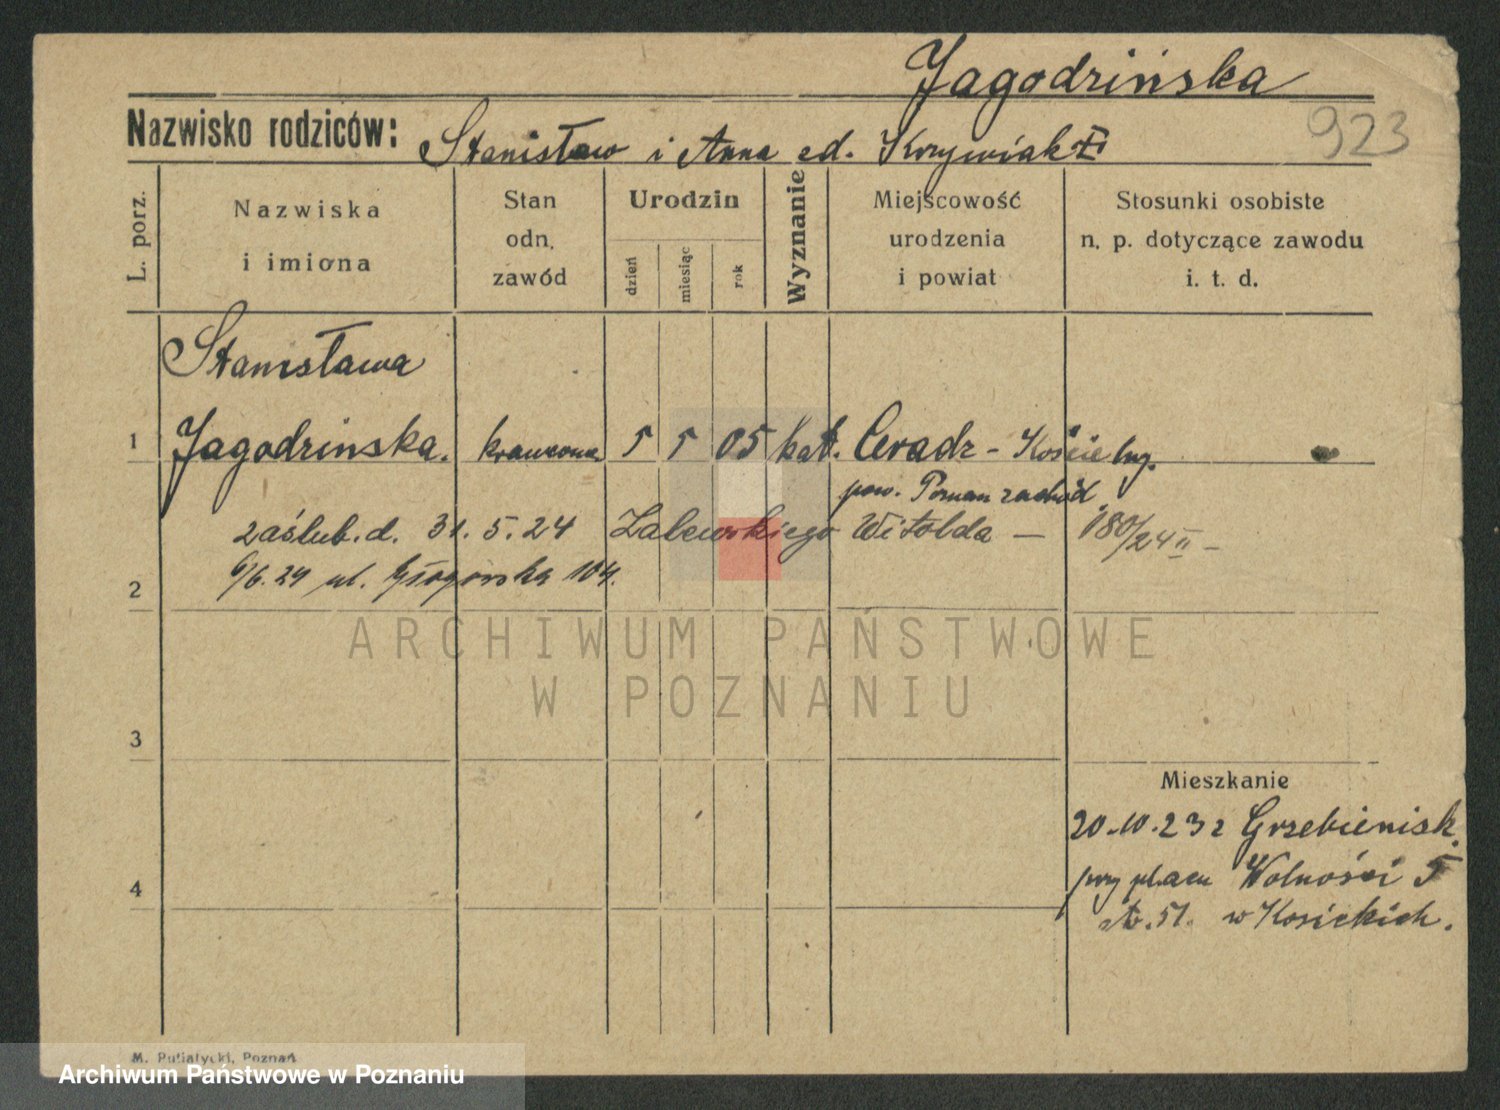 Jagodzińska
923
Nazwisko rodziców: Stanisław i Anna
L. porz.
Nazwiska
i imiona
Stan
odn.
zawód
Urodzin
dzień
miesiąc
rok
Wyznanie
Miejscowość
urodzenia
i powiat
Stosunki osobiste
n. p. dotyczące zawodu
i. t. d.
Stanisława
1 Jagodzinska. 5 5 05 kat. Ceradz - Kościelny.
pow. Poznan zachód
zaślub. d. 31. 5. 24 Zalewskiego Witolda — 180/24 II -
2 6/6. 24 ul. Głogowska 104.
ARCHIWUM PAŃSTWOWE
W POZNANIU
3
Mieszkanie
20.10.23 z Grzebienisk.
przy placu Wolności 5
4 51. w Kosickich.
M. Putiatycki, Poznań
Archiwum Państwowe w Poznaniu